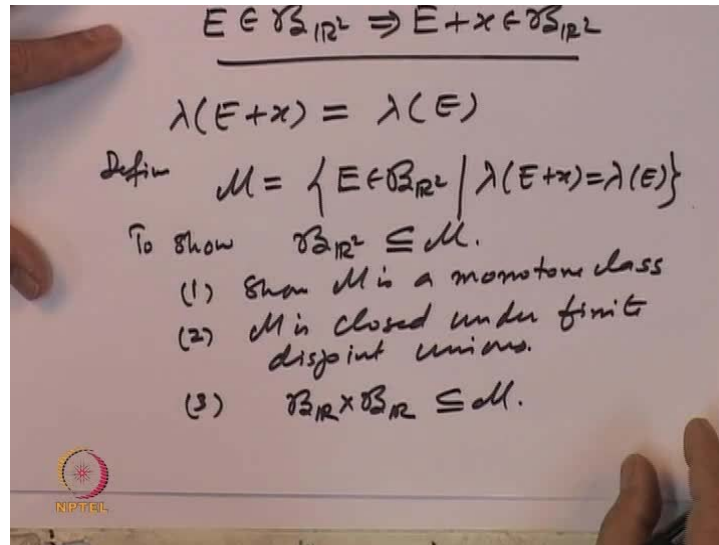 E ∈ 𝓑_ℝ² ⇒ E + x ∈ 𝓑_ℝ²
λ(E+x) = λ(E)
Define 𝓜 = { E ∈ 𝓑_ℝ² | λ(E+x) = λ(E) }
To show 𝓑_ℝ² ⊆ 𝓜.
(1) Show 𝓜 is a monotone class
(2) 𝓜 is closed under finite
disjoint unions.
(3) 𝓑_ℝ × 𝓑_ℝ ⊆ 𝓜.
NPTEL